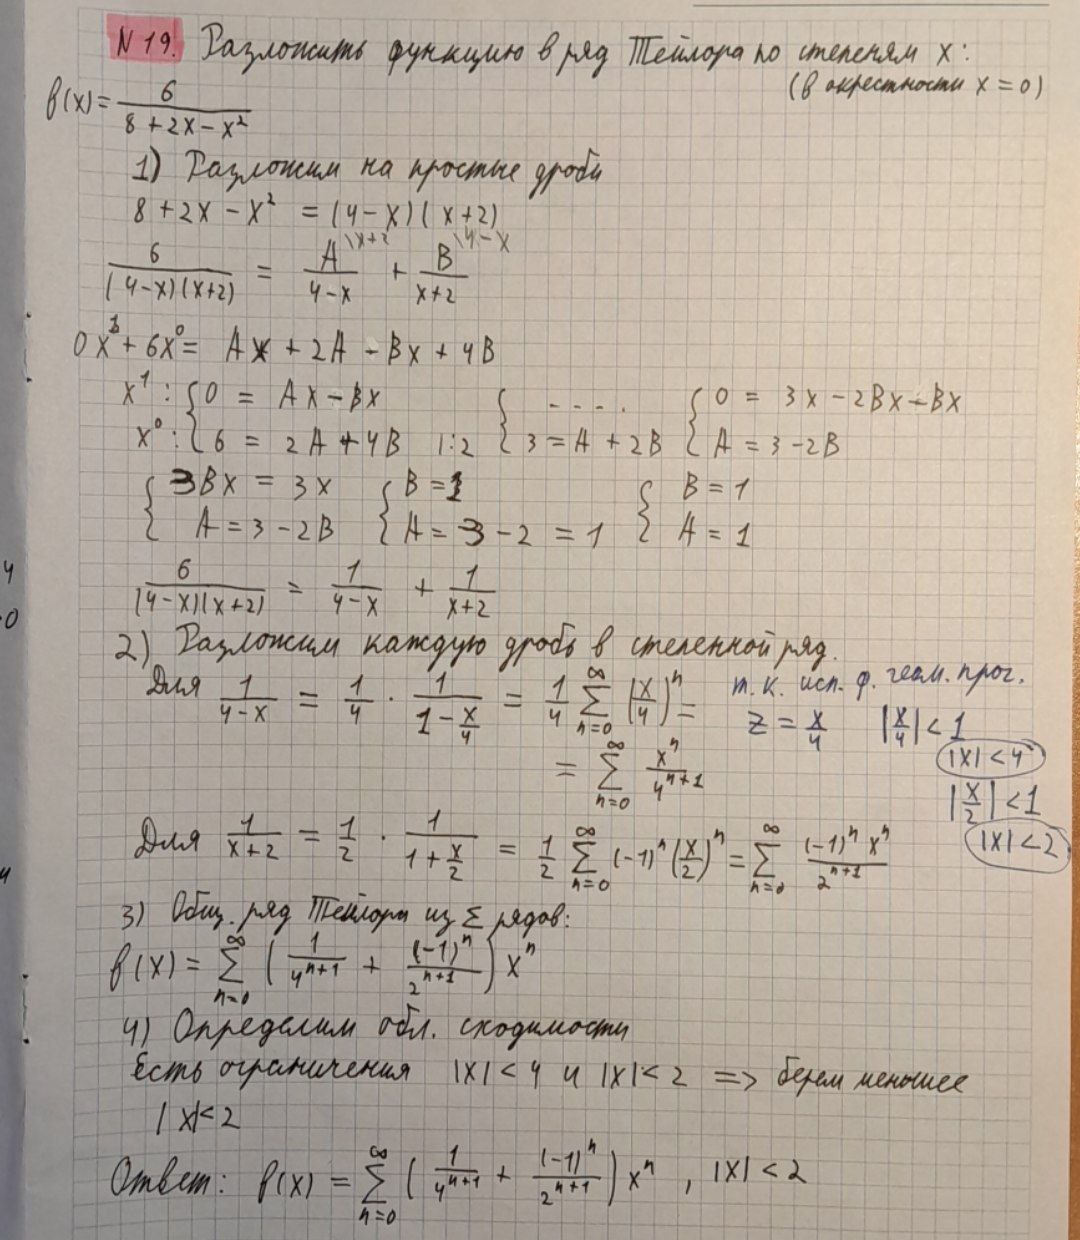 N 19. Разложить функцию в ряд Тейлора по степеням x:
(в окрестности x = 0)
f(x) = 6/(8 + 2x − x²)
1) Разложим на простые дроби
8 + 2x − x² = (4 − x)(x+2)
6/((4−x)(x+2)) = A/(4−x) \x+2 + B/(x+2) \4−x
0x¹ + 6x⁰ = Ax + 2A − Bx + 4B
x¹: { 0 = Ax − Bx { - - - - . { 0 = 3x − 2Bx − Bx
x⁰: { 6 = 2A + 4B |:2 { 3 = A + 2B { A = 3 − 2B
{ 3Bx = 3x { B = 1 { B = 1
{ A = 3 − 2B { A = 3 − 2 = 1 { A = 1
6/((4−x)(x+2)) = 1/(4−x) + 1/(x+2)
2) Разложим каждую дробь в степенной ряд.
Для 1/(4−x) = 1/4 · 1/(1 − x/4) = 1/4 ∑_{n=0}^{∞} (x/4)ⁿ =
= ∑_{n=0}^{∞} xⁿ/4ⁿ⁺¹
т.к. исп. ф. геом. прог.
z = x/4 |x/4| < 1
|x| < 4
|x/2| < 1
|x| < 2
Для 1/(x+2) = 1/2 · 1/(1 + x/2) = 1/2 ∑_{n=0}^{∞} (−1)ⁿ (x/2)ⁿ = ∑_{n=0}^{∞} (−1)ⁿ xⁿ/2ⁿ⁺¹
3) Общ. ряд Тейлора из Σ рядов:
f(x) = ∑_{n=0}^{∞} (1/4ⁿ⁺¹ + (−1)ⁿ/2ⁿ⁺¹) xⁿ
4) Определим обл. сходимости
Есть ограничения |x| < 4 и |x| < 2 => берем меньшее
|x| < 2
Ответ: f(x) = ∑_{n=0}^{∞} (1/4ⁿ⁺¹ + (−1)ⁿ/2ⁿ⁺¹) xⁿ , |x| < 2